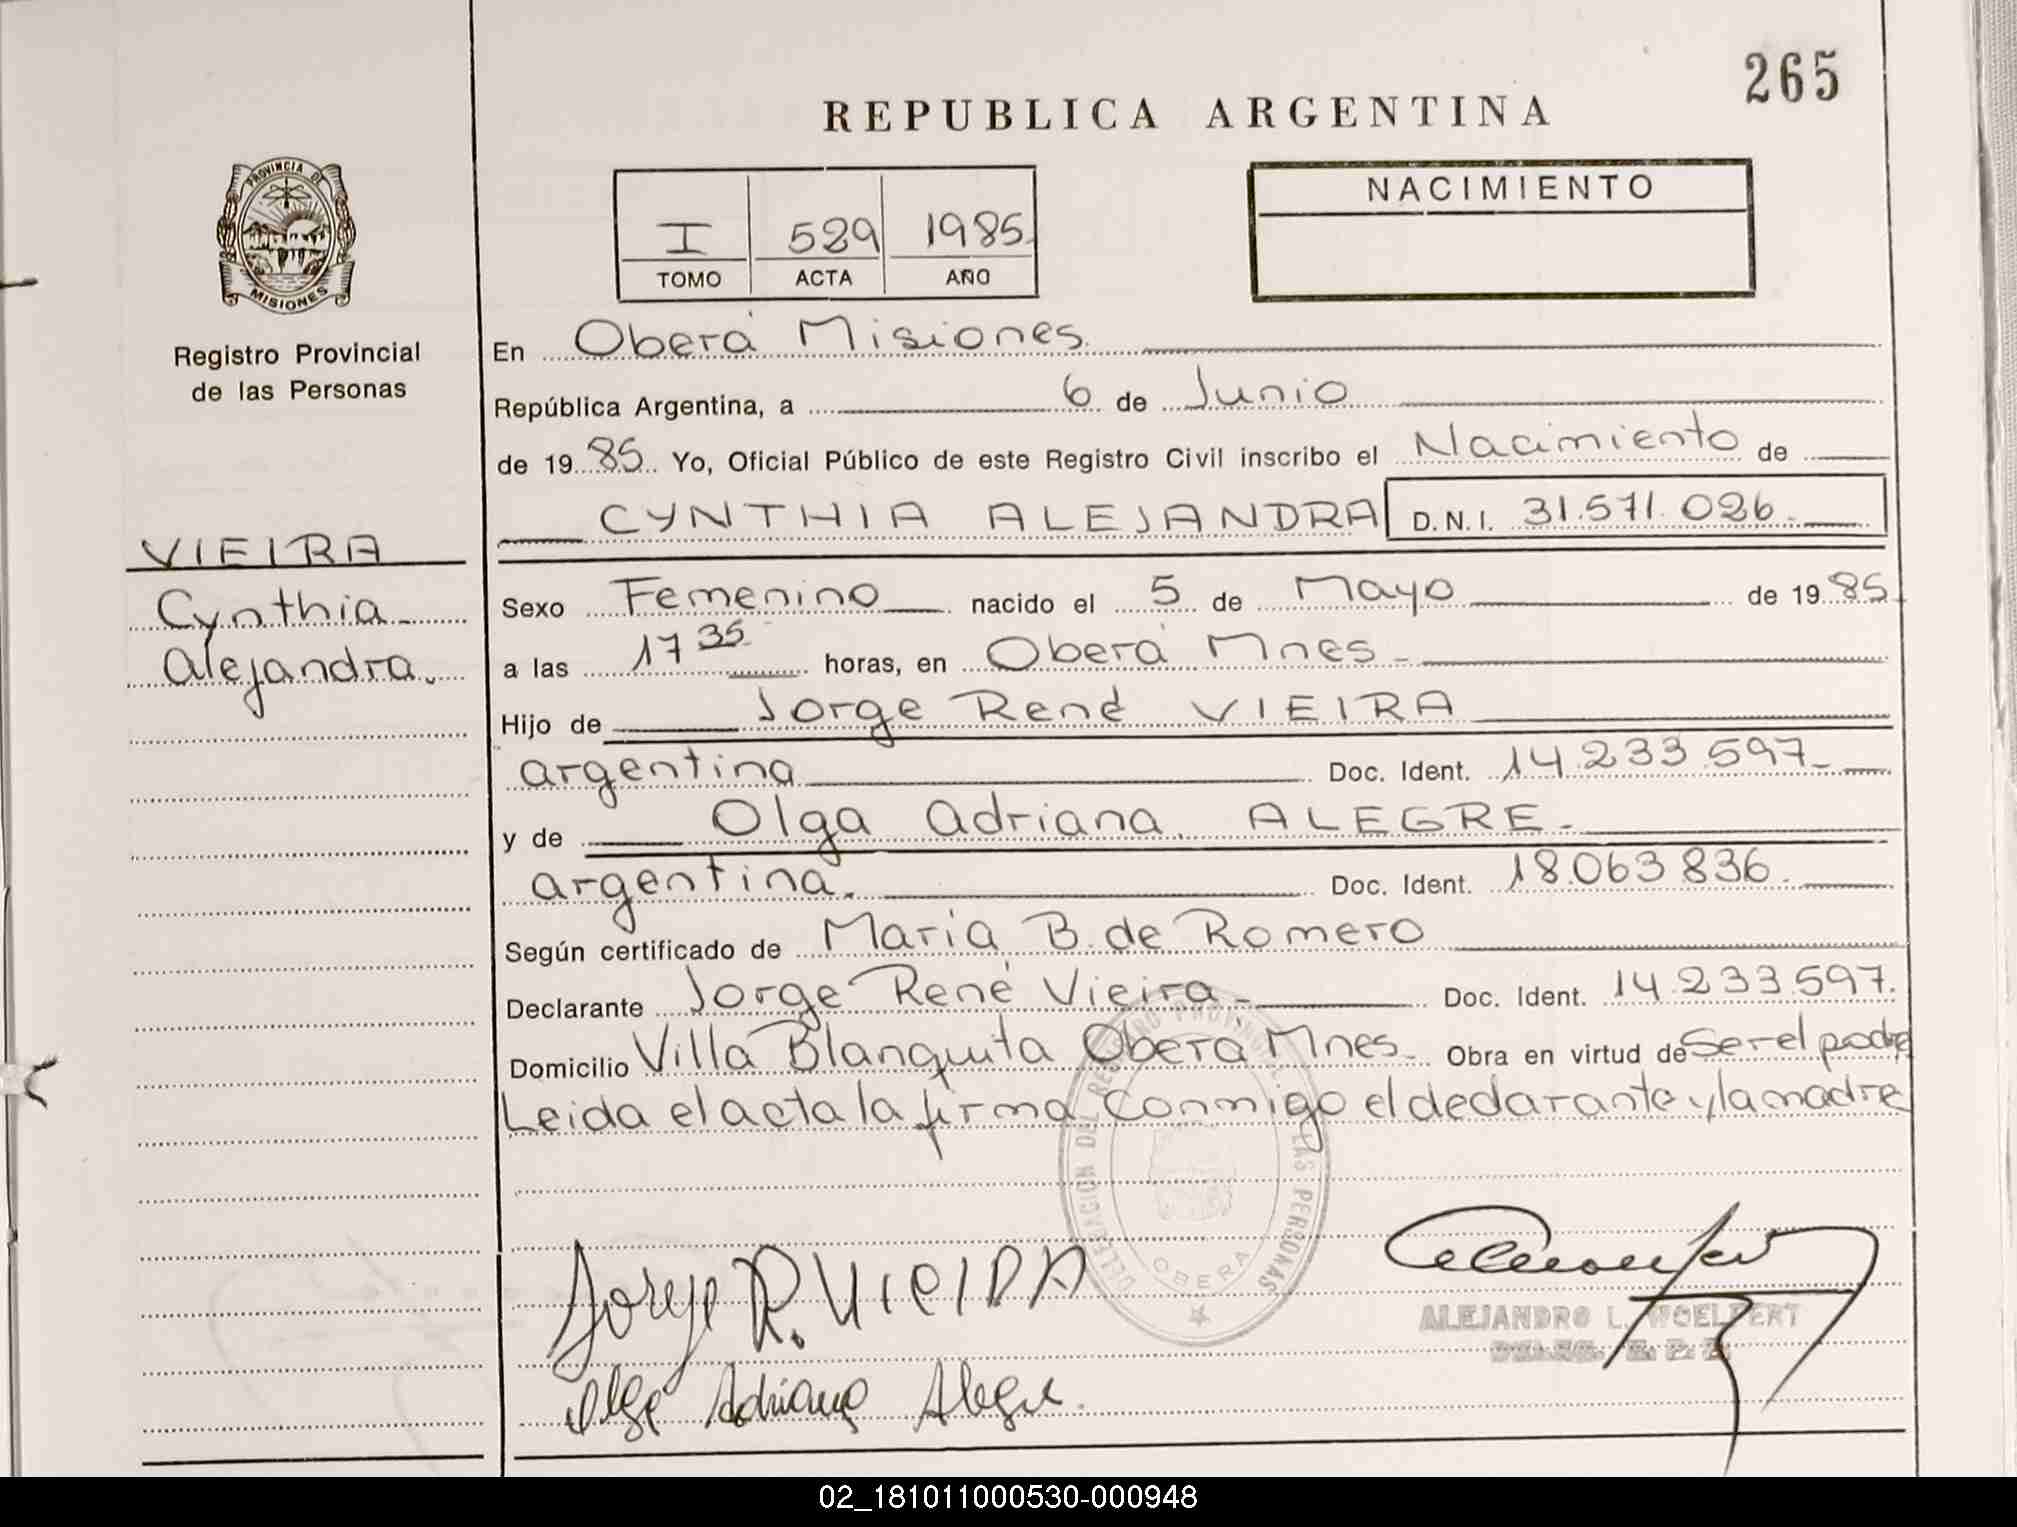 265
REPUBLICA ARGENTINA
PROVINCIA DE
MISIONES
Registro Provincial
de las Personas
I 529 1985
TOMO ACTA AÑO
NACIMIENTO
En Oberá Misiones
República Argentina, a 6 de Junio
de 1985. Yo, Oficial Público de este Registro Civil inscribo el Nacimiento de
CYNTHIA ALEJANDRA D.N.I. 31.571.026
VIEIRA
Cynthia
Alejandra.
Sexo Femenino nacido el 5 de Mayo de 1985
a las 17 35 horas, en Oberá Mnes
Hijo de Jorge René VIEIRA
argentina Doc. Ident. 14.233.597
y de Olga Adriana ALEGRE
argentina. Doc. Ident. 18.063.836
Según certificado de María B. de Romero
Declarante Jorge René Vieira Doc. Ident. 14.233.597.
Domicilio Villa Blanquita Oberá Mnes Obra en virtud de Ser el padre
Leida el acta la firma Conmigo el declarante y la madre
DELEGACION DEL REGISTRO PROVINCIAL LAS PERSONAS
OBERA
Jorge R. VIEIRA
ALEJANDRO L. WOELPERT
Olga Adriana Alegre
02_181011000530-000948